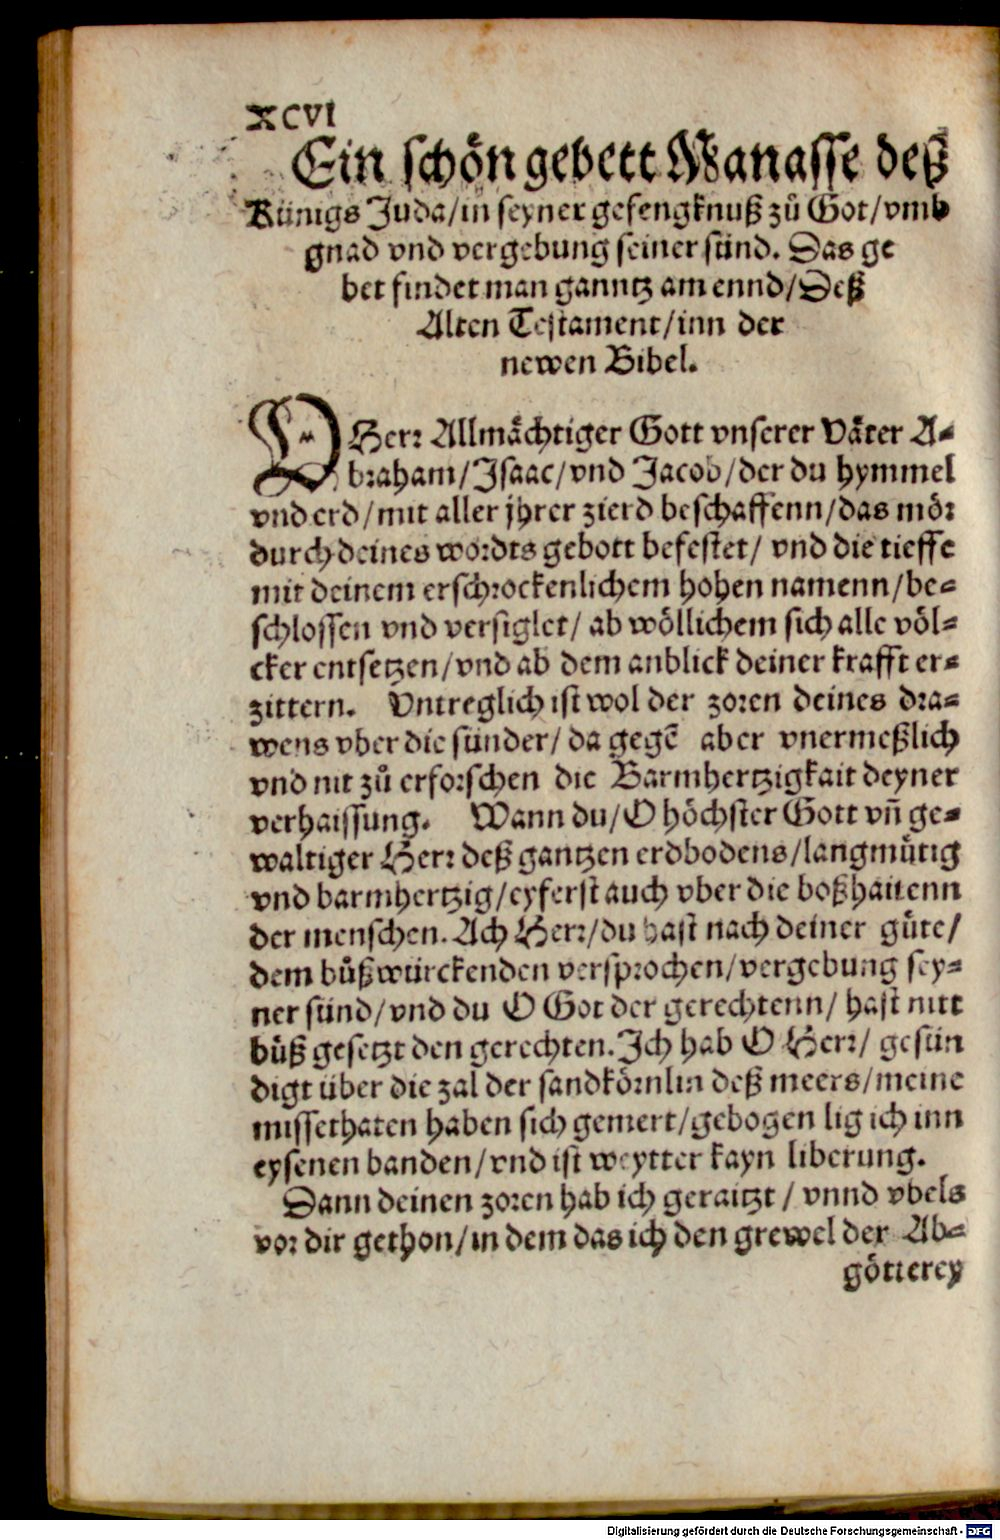 XCVI
Ein schön gebett Manasse deß
Künigs Juda/in seyner gefengknuß zů Got/vmb
gnad vnd vergebung seiner sünd. Das ge
bet findet man ganntz am ennd/Deß
Alten Testament/inn der
newen Bibel.
O Herr Allmächtiger Gott vnserer Väter A-
braham/Isaac/vnd Jacob/der du hymmel
vnd erd/mit aller jhrer zierd beschaffenn/das mör
durch deines wordts gebott befestet/ vnd die tieffe
mit deinem erschrockenlichem hohen namenn/be-
schlossen vnd versiglet/ ab wöllichem sich alle völ-
cker entsetzen/vnd ab dem anblick deiner krafft er-
zittern. Vntreglich ist wol der zoren deines dra-
wens vber die sünder/ da gegē aber vnermeßlich
vnd nit zů erforschen die Barmhertzigkait deyner
verhaissung. Wann du/O höchster Gott vñ ge-
waltiger Herr deß gantzen erdbodens/langmütig
vnd barmhertzig/eyferst auch vber die boßhaitenn
der menschen. Ach Herr/du hast nach deiner güte/
dem bůßwürckenden versprochen/vergebung sey-
ner sünd/vnd du O Got der gerechtenn/ hast nitt
bůß gesetzt den gerechten. Ich hab O Herr/ gesün
digt über die zal der sandkörnlin deß meers/meine
missethaten haben sich gemert/gebogen lig ich inn
eysenen banden/vnd ist weytter kayn liberung.
Dann deinen zoren hab ich geraitzt / vnnd vbels
vor dir gethon/in dem das ich den grewel der Ab-
götterey
Digitalisierung gefördert durch die Deutsche Forschungsgemeinschaft - DFG